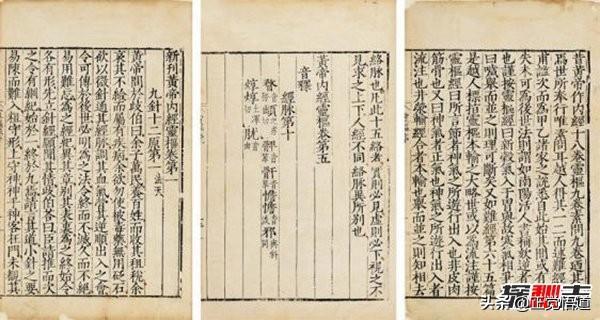 昔黃帝作內經十八卷靈樞九卷素問九卷迺其數
焉世所奉行唯素問耳越人得其一二而述難經皇
甫謐次而為甲乙諸家之說悉自此始其間或有得
失未可為後世法則謂如南陽活人書稱欬逆者噦
也謹按靈樞經曰新穀氣入于胃與故寒氣相爭故
曰噦舉而並之則理可斷矣又如難經第六十五篇
是越人標指靈樞本輸之大略世或以為流注謹按
靈樞經曰所言節者神氣之所遊行出入也非皮肉
筋骨也又曰神氣者正氣也神氣之所遊行出入者
流注也井滎輸經合者本輸也舉而並之則知相去
絡脉也凡此十五絡者實則必見虛則必下視之不
見求之上下人經不同絡脉異所別也
黃帝內經靈樞卷第五
音釋
經脉第十
新刊黃帝內經靈樞卷第一
九針十二原第一 法天
黃帝問於歧伯曰余子萬民養百姓而收其租稅余
哀其不給而屬有疾病余欲勿使被毒藥無用砭石
欲以微針通其經脉調其血氣營其逆順出入之會
令可傳於後世必明為之法令終而不滅久而不絕
易用難忘為之經紀異其章別其表裏為之終始令
各有形先立針經願聞其情歧伯荅曰臣請推而次
之令有綱紀始於一終於九焉請言其道小針之要
易陳而難入粗守形上守神神乎神客在門未覩其
头条@正觉悟道